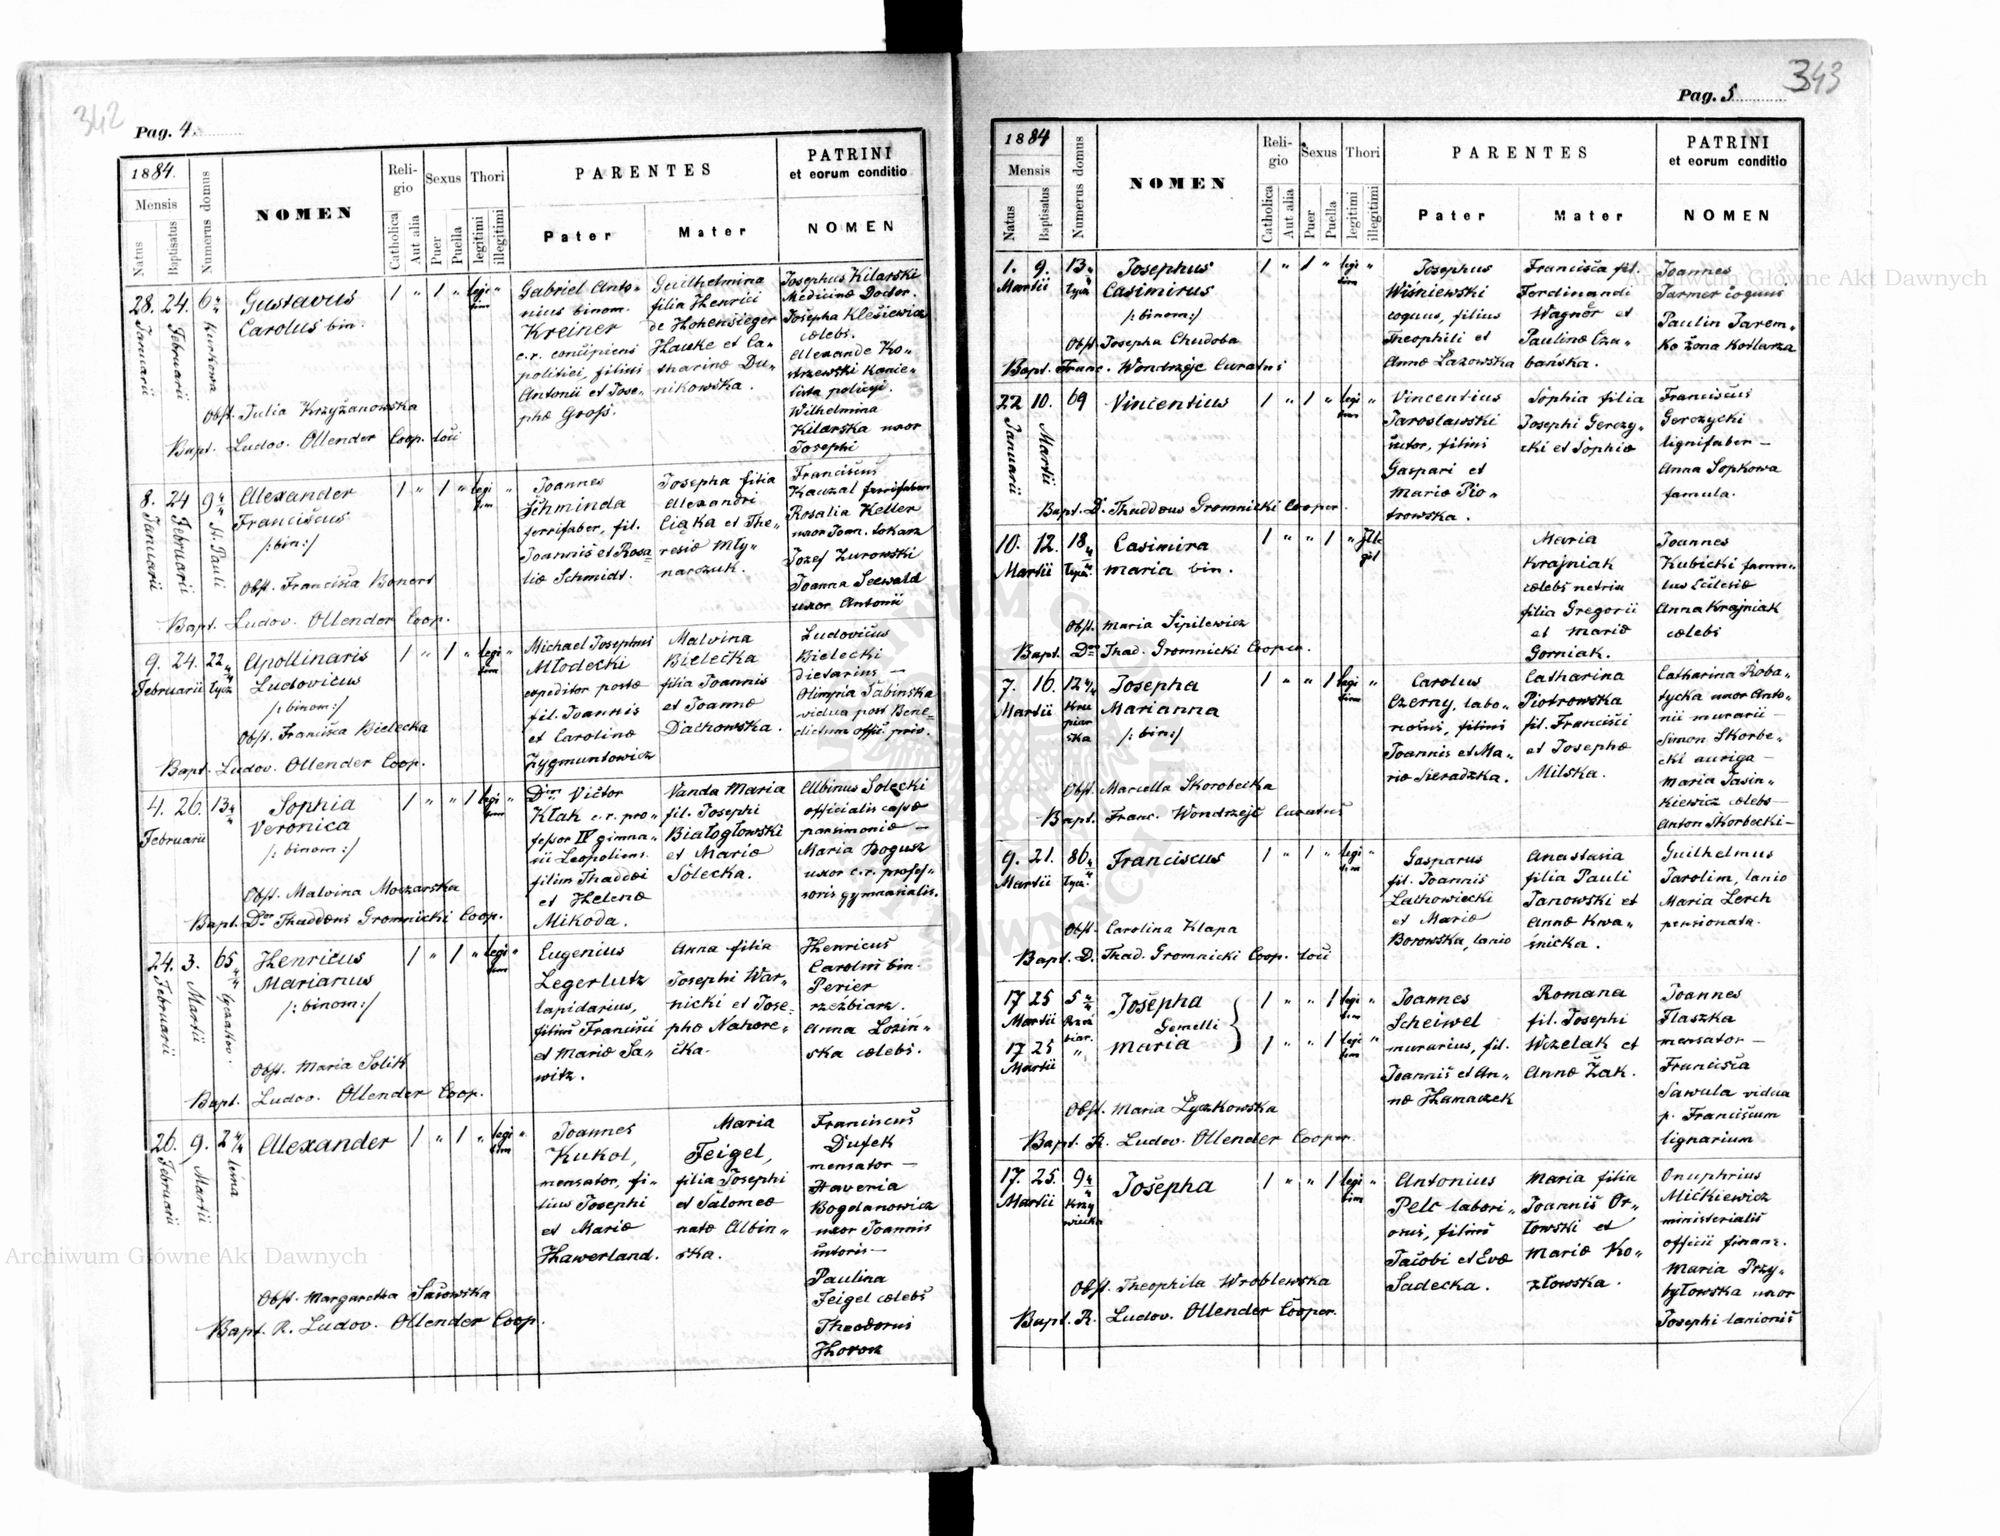 342
Pag. 4.
1884.
Mensis
Natus
Baptisatus
Numerus domus
NOMEN
Religio
Catholica
Aut alia
Sexus
Puer
Puella
Thori
legitimi
illegitimi
PARENTES
Pater
Mater
PATRINI
et eorum conditio
NOMEN
28. Januarii
24. Februarii
6
Kurkowa
Gustavus
Carolus bin.
1 " 1 " legi "
tim
Obst. Julia Krzyżanowska
Bapt. Ludov. Ollender Coop. loci
Gabriel Anto-
nius binom.
Kreiner
c.r. concipiens
politiei, filius
Antonii et Jose-
phæ Gross.
Guilhelmina
filia Henrici
de Hohensieger
Hauke et Ca-
tharinæ Du-
nikowska.
Josephus Kilarski
Medicinæ Doctor.
Josepha Klesiewicz
cælebs.
Alexande Ko-
strzewski kance-
lista policyi.
Wilhelmina
Kilarska uxor
Josephi
8. Januarii
24 Februarii
9
S. Pauli
Alexander
Franciscus
/:bin:/
1 " 1 " legi "
tim
Obst. Francisca Bonert
Bapt. Ludov. Ollender Coop.
Joannes
Schminda
ferrifaber, fil.
Joannis et Rosa-
liæ Schmidt.
Josepha filia
Alexandri
Ciąka et The-
resiæ Mły-
narczuk.
Franciscus
Kauzal ferrifaber
Rosalia Keller
uxor Joan. tokarz
Jozef Zurowski
Joanna Seewald
uxor Antonii
9. 24. 22
Februarii Łycz
Apollinaris
Ludovicus
/:binom:/
1 " 1 " legi "
tim
Obst. Francisca Bielecka
Bapt. Ludov. Ollender Coop.
Michael Josephus
Młodecki
expeditor postæ
fil. Joannis
et Carolinæ
Zygmuntowicz
Malvina
Bielecka
filia Joannis
et Joannæ
Dachowska.
Ludovicus
Bielecki
dietarius —
Olimpia Sabinska
vidua post Bene-
dictum offic. priv.
4. 26. 13
Februarii
Sophia
Veronica
/: binom:/
1 " " 1 legi "
tim
Obst. Malvina Moczarska
Bapt. Dr Thaddæus Gromnicki Coop.
Victor
Kłak c.r. pro-
fessor IV gimna-
sii Leopoliens.
filius Thaddæi
et Helenæ
Mikoda.
Vanda Maria
fil. Josephi
Białogłowski
et Mariæ
Solecka.
Albinus Solecki
officialis capsæ
parsimoniæ —
Maria Bogusz
uxor c.r. profes-
soris gymnasialis.
24. Februarii
3. Martii
65
Lyczakov.
Henricus
Marianus
/: binom:/
1 " 1 " legi "
tim
Obst. Maria Solik
Bapt. Ludov. Ollender Coop.
Eugenius
Legerlutz
lapidarius,
filius Francisci
et Mariæ Sa-
witz.
Anna filia
Josephi War-
nicki et Jose-
phæ Nahore-
cka.
Henricus
Carolus bin.
Perier
rzeźbiarz.
Anna Łozin-
ska cælebs.
26. Februarii
9. Martii
2 4/4
Alexander
1 " 1 " legi "
tim
Obst. Margaretha Sasowska
Bapt. R. Ludov. Ollender Coop.
Joannes
Kukol,
mensator, fi-
lius Josephi
et Mariæ
Hawerland.
Maria
Feigel,
filia Josephi
et Salomeæ
natæ Albin-
ska.
Franciscus
Dufek
mensator —
Xaveria
Bogdanowicz
uxor Joannis
sutoris —
Paulina
Feigel cælebs
Theodorus
343
Pag. 5
1884
Mensis
Natus
Baptisatus
Numerus domus
NOMEN
Religio
Catholica
Aut alia
Sexus
Puer
Puella
Thori
legitimi
illegitimi
PARENTES
Pater
Mater
PATRINI
et eorum conditio
NOMEN
1. 9. 13
Martii Łycz
Josephus
Casimirus
/: binom:/
1 " 1 " legi "
tim
Obst. Josepha Chudoba
Bapt. Franc. Wondrzejc Curatus
Josephus
Wiśniewski
coquus, filius
Theophili et
Annæ Łazowska
Francisca fil.
Ferdinandi
Wagner et
Paulinæ Cza-
bańska.
Joannes
Jarmer coquus
Paulin Jarem-
ko żona kotlarza
22 Januarii
10. Martii
69
Vincentius
1 " 1 " legi "
tim
Bapt. D. Thaddæus Gromnicki Cooper.
Vincentius
Jarosławski
sutor, filius
Gaspari et
Mariæ Pio-
trowska.
Sophia filia
Josephi Gerczy-
cki et Sophiæ
Franciscus
Gerczycki
lignifaber —
Anna Sopkowa
famula.
10. 12. 18
Martii Łycz
Casimira
Maria bin.
1 " " 1 " Ille
git
Obst. Maria Sipilewicz
Bapt. Dr Thad. Gromnicki Cooper.
Maria
Krajniak
cælebs netrix
filia Gregorii
et Mariæ
Gorniak.
Joannes
Kubicki famu-
lus Ecclesiæ
Anna Krajniak
cælebs
7. 16. 12
Martii Kru
piar
ska
Josepha
Marianna
/: bin:/
1 " " 1 legi "
tim
Obst. Marcella Skorobecka
Bapt. Franc. Wondrzejc Curatus
Carolus
Czerny, labo-
riosus, filius
Joannis et Ma-
riæ Sieradzka.
Catharina
Piotrowska
fil. Francisci
et Josephæ
Milska.
Catharina Roba-
tycka uxor Anto-
nii murarii —
Simon Skorbe-
cki auriga —
Maria Jasin-
kiewicz cælebs —
Anton Skorbecki —
9. 21. 86
Martii Łycz
Franciscus
1 " 1 " legi "
tim
Obst. Carolina Klapa
Bapt. D. Thad. Gromnicki Coop. loci
Gasparus
fil. Joannis
Lachowiecki
et Mariæ
Borowska, lanio
Anastasia
filia Pauli
Janowski et
Annæ Kwa-
śnicka.
Guilhelmus
Jarolim, lanio
Maria Lerch
pensionata.
17 25 5
Martii Rzeź
biar.
17 25 "
Martii
Josepha
Gemelli
Maria
1 " " 1 legi "
tim
1 " " 1 legi "
tim
Obst. Maria Łyczkowska
Bapt. R. Ludov. Ollender Cooper.
Joannes
Scheiwel
murarius, fil.
Joannis et An-
næ Hamaczek
Romana
fil. Josephi
Wczelak et
Annæ Żak.
Joannes
Flaszka
mensator —
Francisca
Sawula vidua
p. Franciscum
lignarium
17. 25. 9
Martii Krzy
wiecka
Josepha
1 " " 1 legi "
tim
Obst. Theophila Wroblewska
Bapt. R. Ludov. Ollender Cooper.
Antonius
Pelc labori-
osus, filius
Jacobi et Evæ
Sadecka.
Maria filia
Joannis Or-
łowski et
Mariæ Ko-
złowska.
Onuphrius
Mickiewicz
ministerialis
officii finanz.
Maria Przy-
byłowska uxor
Josephi lanionis
Archiwum Główne Akt Dawnych
Archiwum Główne Akt Dawnych